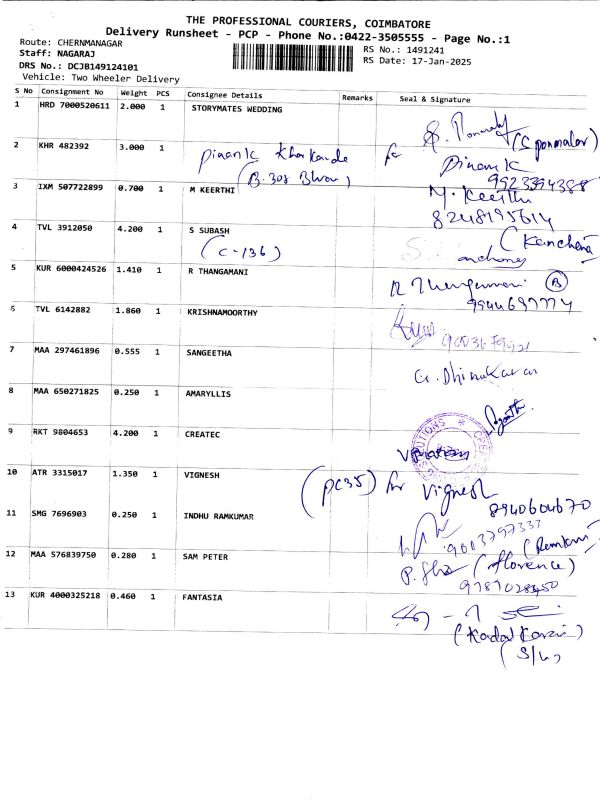 THE PROFESSIONAL COURIERS, COIMBATORE
Delivery Runsheet - PCP - Phone No.:0422-3505555 - Page No.:1
Route: CHERNMANAGAR
RS No.: 1491241
Staff: NAGARAJ
RS Date: 17-Jan-2025
DRS No.: DCJB149124101
Vehicle: Two Wheeler Delivery
S No Consignment No Weight PCS Consignee Details Remarks Seal & Signature
1 HRD 7000520611 2.000 1 STORYMATES WEDDING
(S ponmalar)
2 KHR 482392 3.000 1
for
9923394388
3 IXM 507722899 0.700 1 M KEERTHI M. Keerthi
8248195614
4 TVL 3912050 4.200 1 S SUBASH
(C-136)
5 KUR 6000424526 1.410 1 R THANGAMANI R Thangamani
9944697774
6 TVL 6142882 1.860 1 KRISHNAMOORTHY
7 MAA 297461896 0.555 1 SANGEETHA G. Dhinakaran
8 MAA 650271825 0.250 1 AMARYLLIS
9 RKT 9804653 4.200 1 CREATEC
10 ATR 3315017 1.350 1 VIGNESH (PC35) for Vignesh
8940604670
11 SMG 7696903 0.250 1 INDHU RAMKUMAR 9003797333
12 MAA 576839750 0.280 1 SAM PETER (florence)
13 KUR 4000325218 0.460 1 FANTASIA